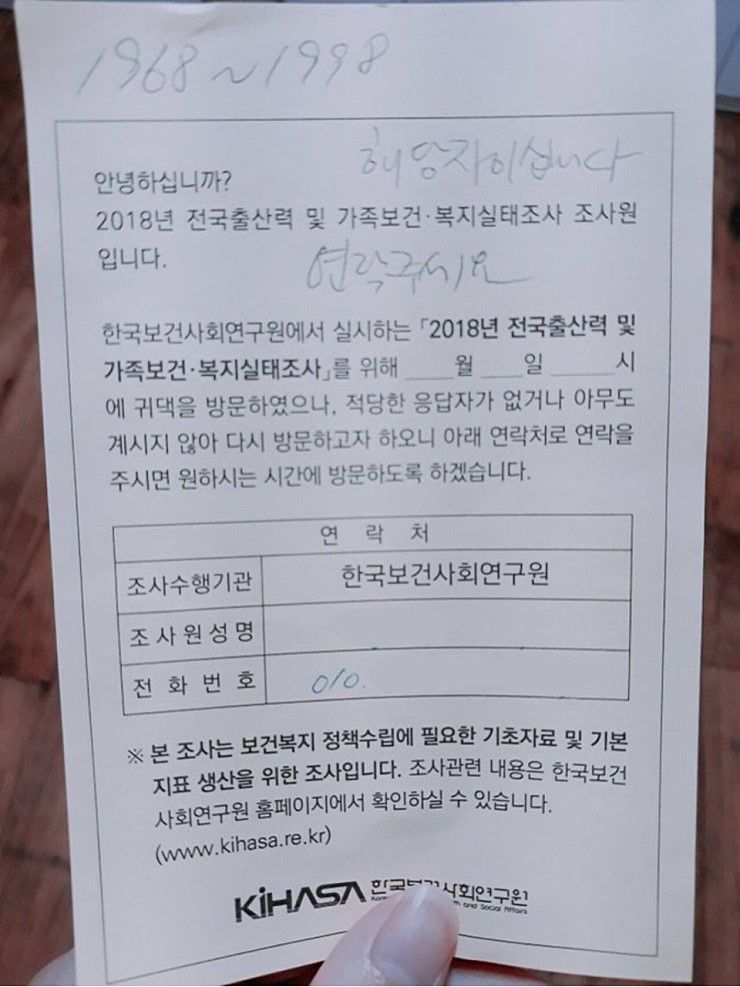 1968~1998
해당자이십니다
안녕하십니까?
2018년 전국출산력 및 가족보건·복지실태조사 조사원
입니다.
연락주세요
한국보건사회연구원에서 실시하는 「2018년 전국출산력 및
가족보건·복지실태조사」를 위해 ___월 ___일 ____시
에 귀댁을 방문하였으나, 적당한 응답자가 없거나 아무도
계시지 않아 다시 방문하고자 하오니 아래 연락처로 연락을
주시면 원하시는 시간에 방문하도록 하겠습니다.
연 락 처
조사수행기관 한국보건사회연구원
조 사 원 성 명
전 화 번 호 010.
※ 본 조사는 보건복지 정책수립에 필요한 기초자료 및 기본
지표 생산을 위한 조사입니다. 조사관련 내용은 한국보건
사회연구원 홈페이지에서 확인하실 수 있습니다.
(www.kihasa.re.kr)
KiHASA 한국보건사회연구원
and Social Affairs